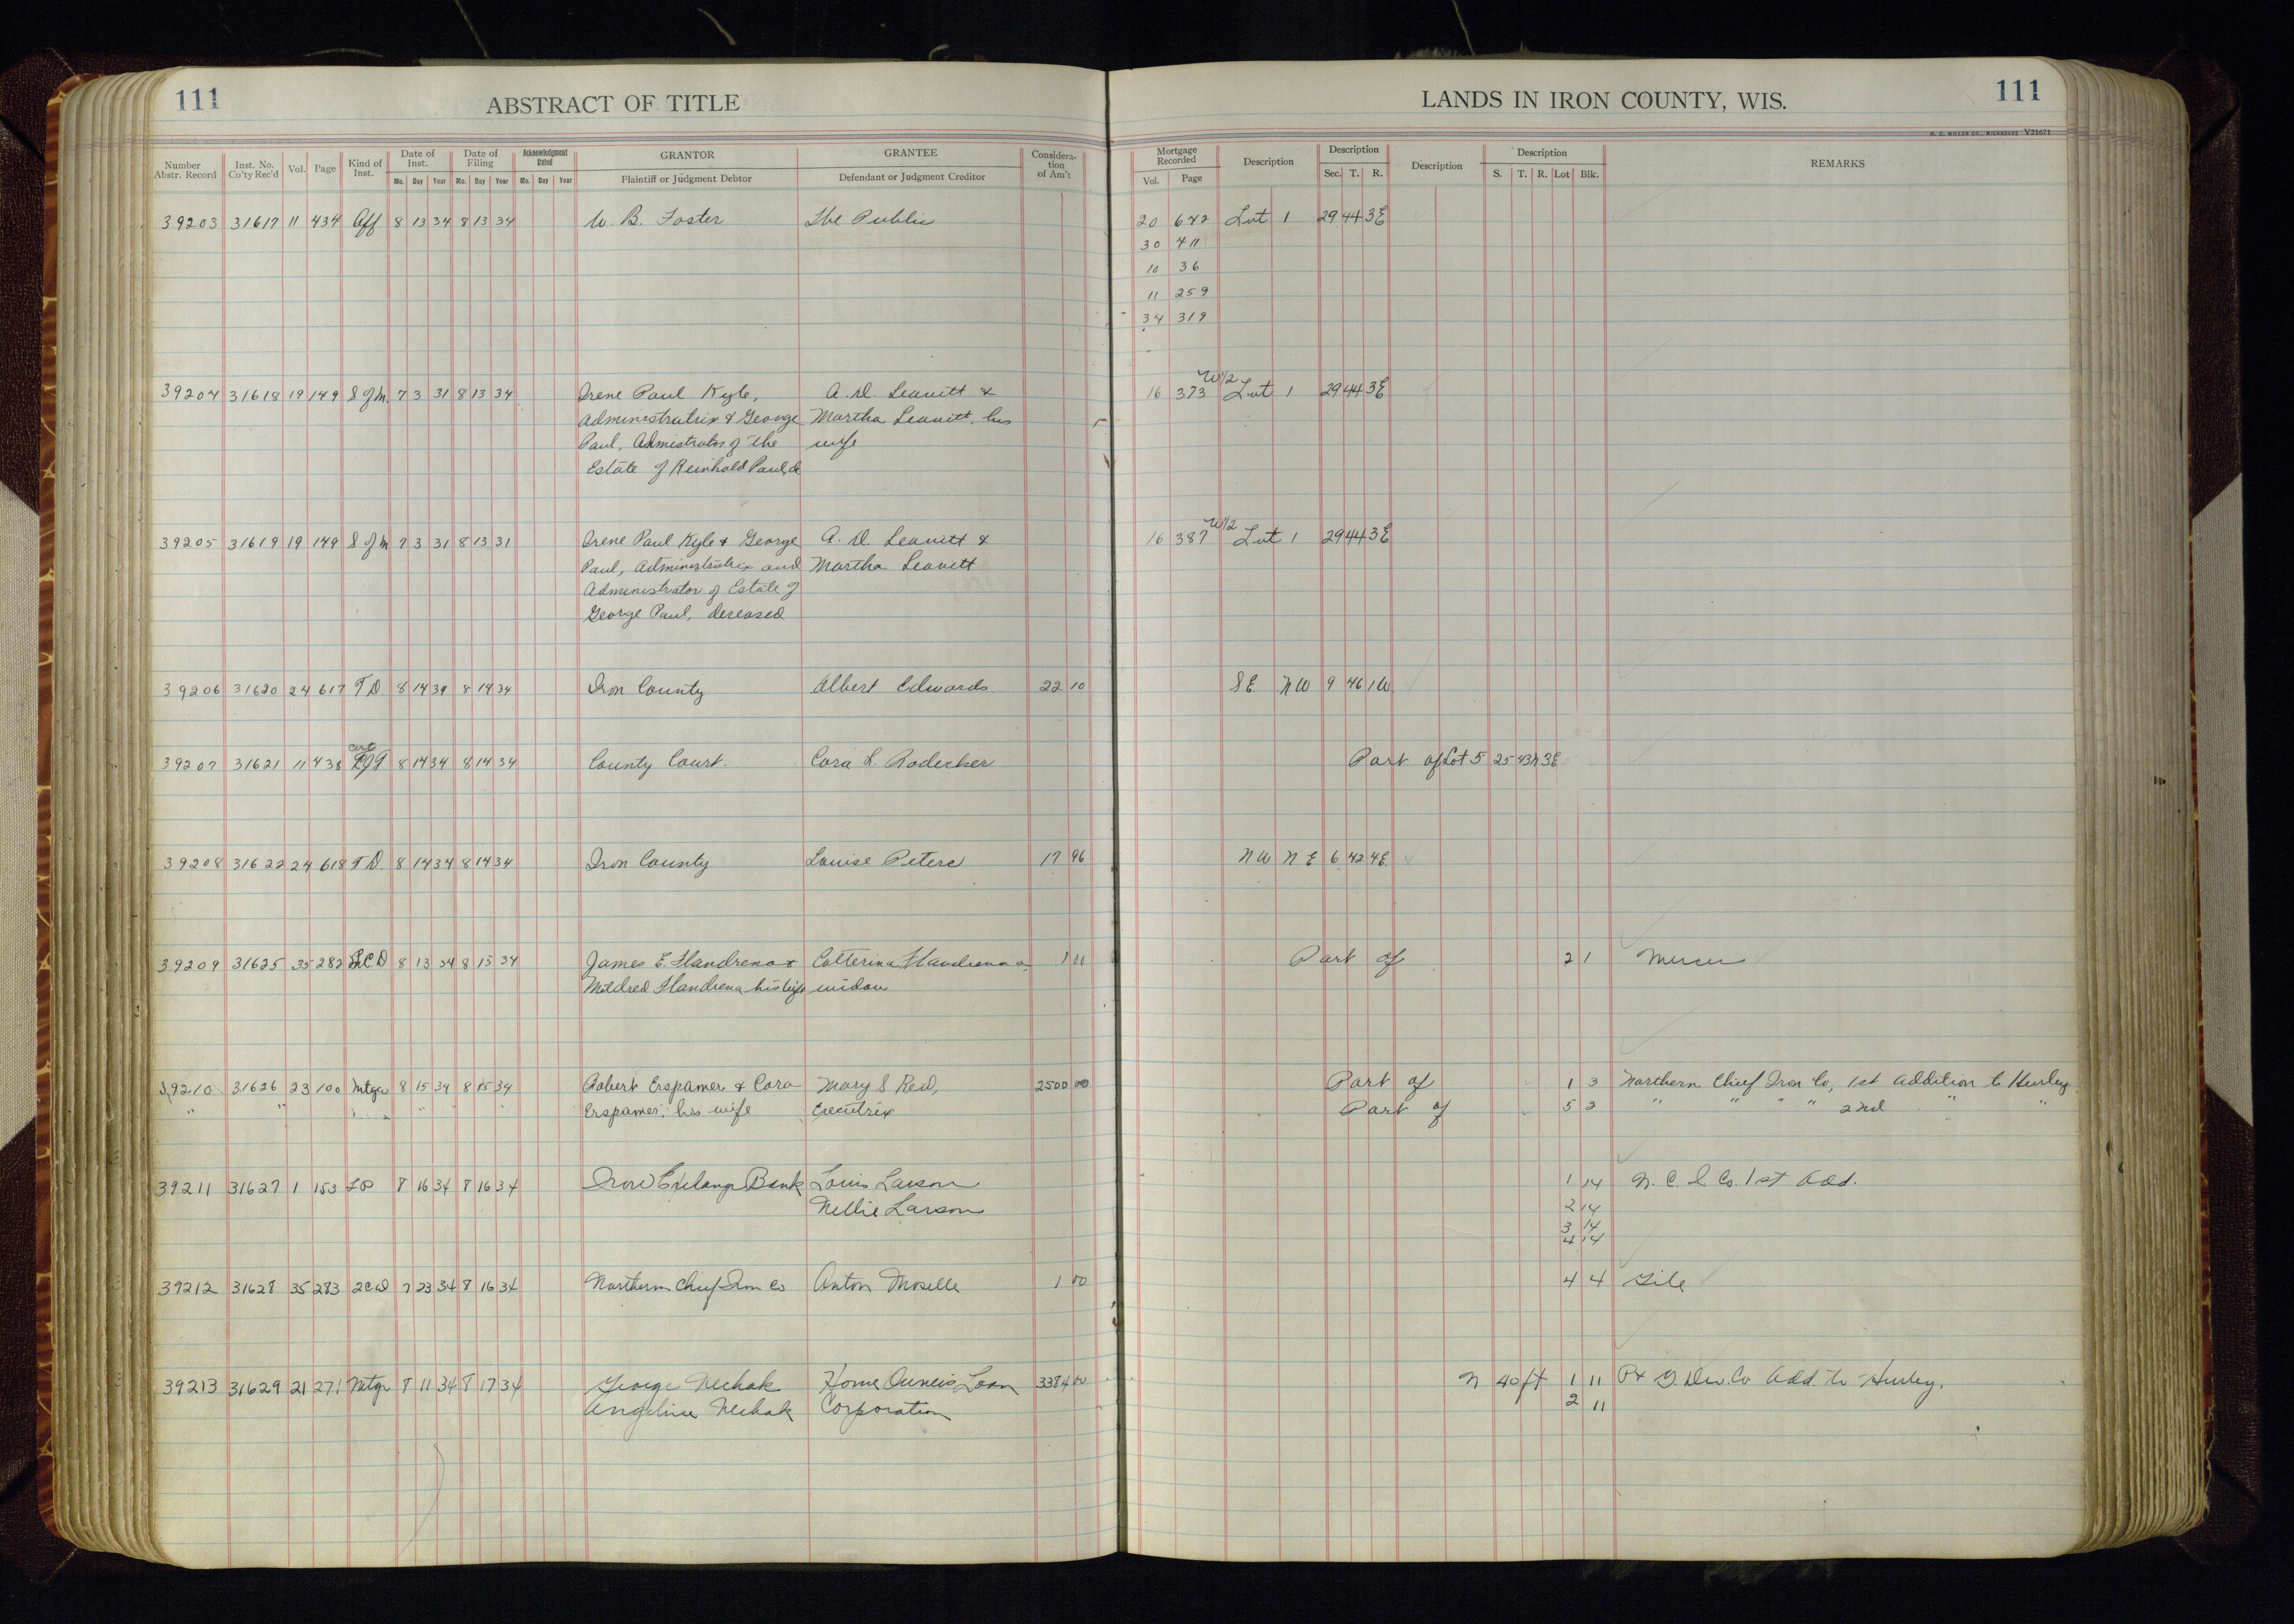 111
ABSTRACT OF TITLE
LANDS IN IRON COUNTY, WIS.
111
H. C. MILLER CO., MILWAUKEE Y21671
Number Abstr. Record Inst. No. Co'ty Rec'd Vol. Page Kind of Inst. Date of Inst. Mo. Day Year Date of Filing Mo. Day Year Acknowledgment Dated Mo. Day Year GRANTOR Plaintiff or Judgment Debtor GRANTEE Defendant or Judgment Creditor Considera-tion of Am't Mortgage Recorded Vol. Page Description Description Sec. T. R. Description Description S. T. R. Lot Blk. REMARKS
39203 31617 11 434 Aff 8 13 34 8 13 34 W. B. Foster The Public 20 642 Lot 1 29 44 3E
30 411
10 36
11 259
34 319
W 1/2
39204 31618 19 149 S of M. 7 3 31 8 13 34 Irene Paul Kyle, A. D. Leavitt & 16 373 Lot 1 29 44 3E
Administratrix & George Martha Leavitt, his
Paul, Admistrator of the wife
Estate of Reinhold Paul, de
W 1/2
39205 31619 19 149 S of M 7 3 31 8 13 31 Irene Paul Kyle & George A. D. Leavitt & 16 387 Lot 1 29 44 3E
Paul, Administratrix and Martha Leavitt
Administrator of Estate of
George Paul, deceased
39206 31620 24 617 T D 8 14 34 8 14 34 Iron County Albert Edwards 22 10 S E. N W 9 46 1W.
Cert
39207 31621 11 438 8 14 34 8 14 34 County Court. Cora L. Rodecker Part of Lot 5 25 43N 3E
39208 31622 24 618 T D. 8 14 34 8 14 34 Iron County Louise Peters 17 96 N W N E 6 42 4E
39209 31625 35 282 2.C.D 8 13 34 8 15 34 James E. Flandrena & Catterina Flandrena a 1 00 Part of 2 1 Mercer
Mildred Flandrena his wife widow
39210 31626 23 100 Mtge 8 15 34 8 15 34 Robert Erspamer & Cora Mary S Reid, 2500 00 Part of 1 3 Northern Chief Iron Co, 1st Addition to Hurley
" " " " " Erspamer, his wife Executrix Part of 5 2 " " " " 2nd " "
39211 31627 1 153 LP 8 16 34 8 16 34 Iron Exchange Bank Louis Larson 1 14 N. C. I. Co. 1st Add.
Nellie Larson 2 14
3 14
4 14
39212 31628 35 283 2CD 7 23 34 8 16 34 Northern Chief Iron Co Anton Moselle 1 00 4 4 Gile
39213 31629 21 271 Mtge 8 11 34 8 17 34 George Nechak Home Owners Loan 3384 00 N 40 ft 1 11 Dev. Co Add. to Hurley.
Angeline Nechak Corporation 2 11